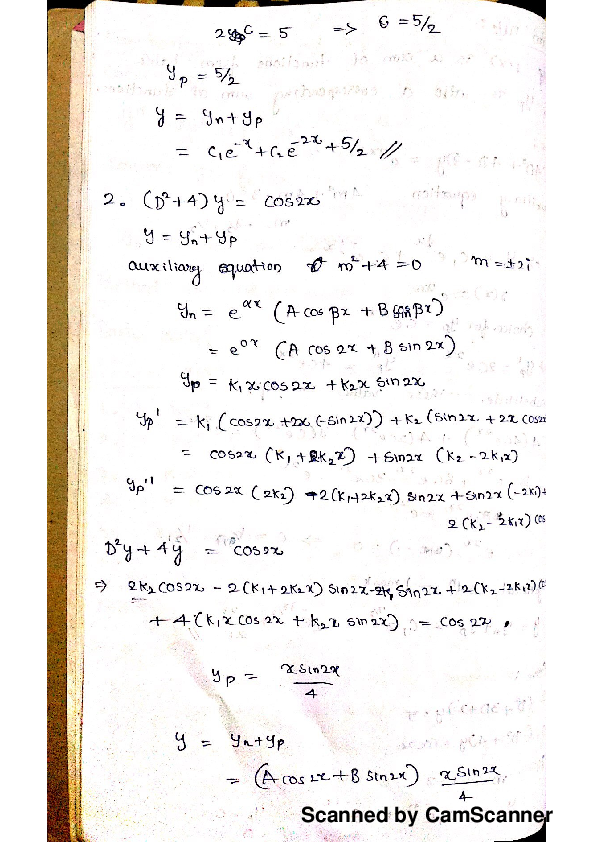 2C = 5 => C = 5/2
yp = 5/2
y = yn + yp
= C₁e^-x + C₂e^-2x + 5/2 //
2. (D² + 4) y = cos2x
y = yn + yp
auxiliary equation m² + 4 = 0 m = ±2i
yn = e^αx (A cos βx + B sin βx)
= e^0x (A cos 2x + B sin 2x)
yp = K₁x cos2x + K₂x sin2x
yp' = K₁ (cos2x + 2x (-sin2x)) + K₂ (sin2x + 2x cos2x
= cos2x (K₁ + 2K₂x) + sin2x (K₂ - 2K₁x)
yp'' = cos2x (2K₂) - 2(K₁+2K₂x) sin2x + sin2x (-2K₁) +
2 (K₂ - 2K₁x) cos
D²y + 4y = cos2x
⇒ 2K₂ cos2x - 2(K₁ + 2K₂x) sin2x - 2K₁ sin2x + 2(K₂ - 2K₁x) (c
+ 4 (K₁x cos2x + K₂x sin2x) = cos 2x .
yp = x sin2x / 4
y = yn + yp
= (A cos 2x + B sin2x) x sin2x / 4
Scanned by CamScanner